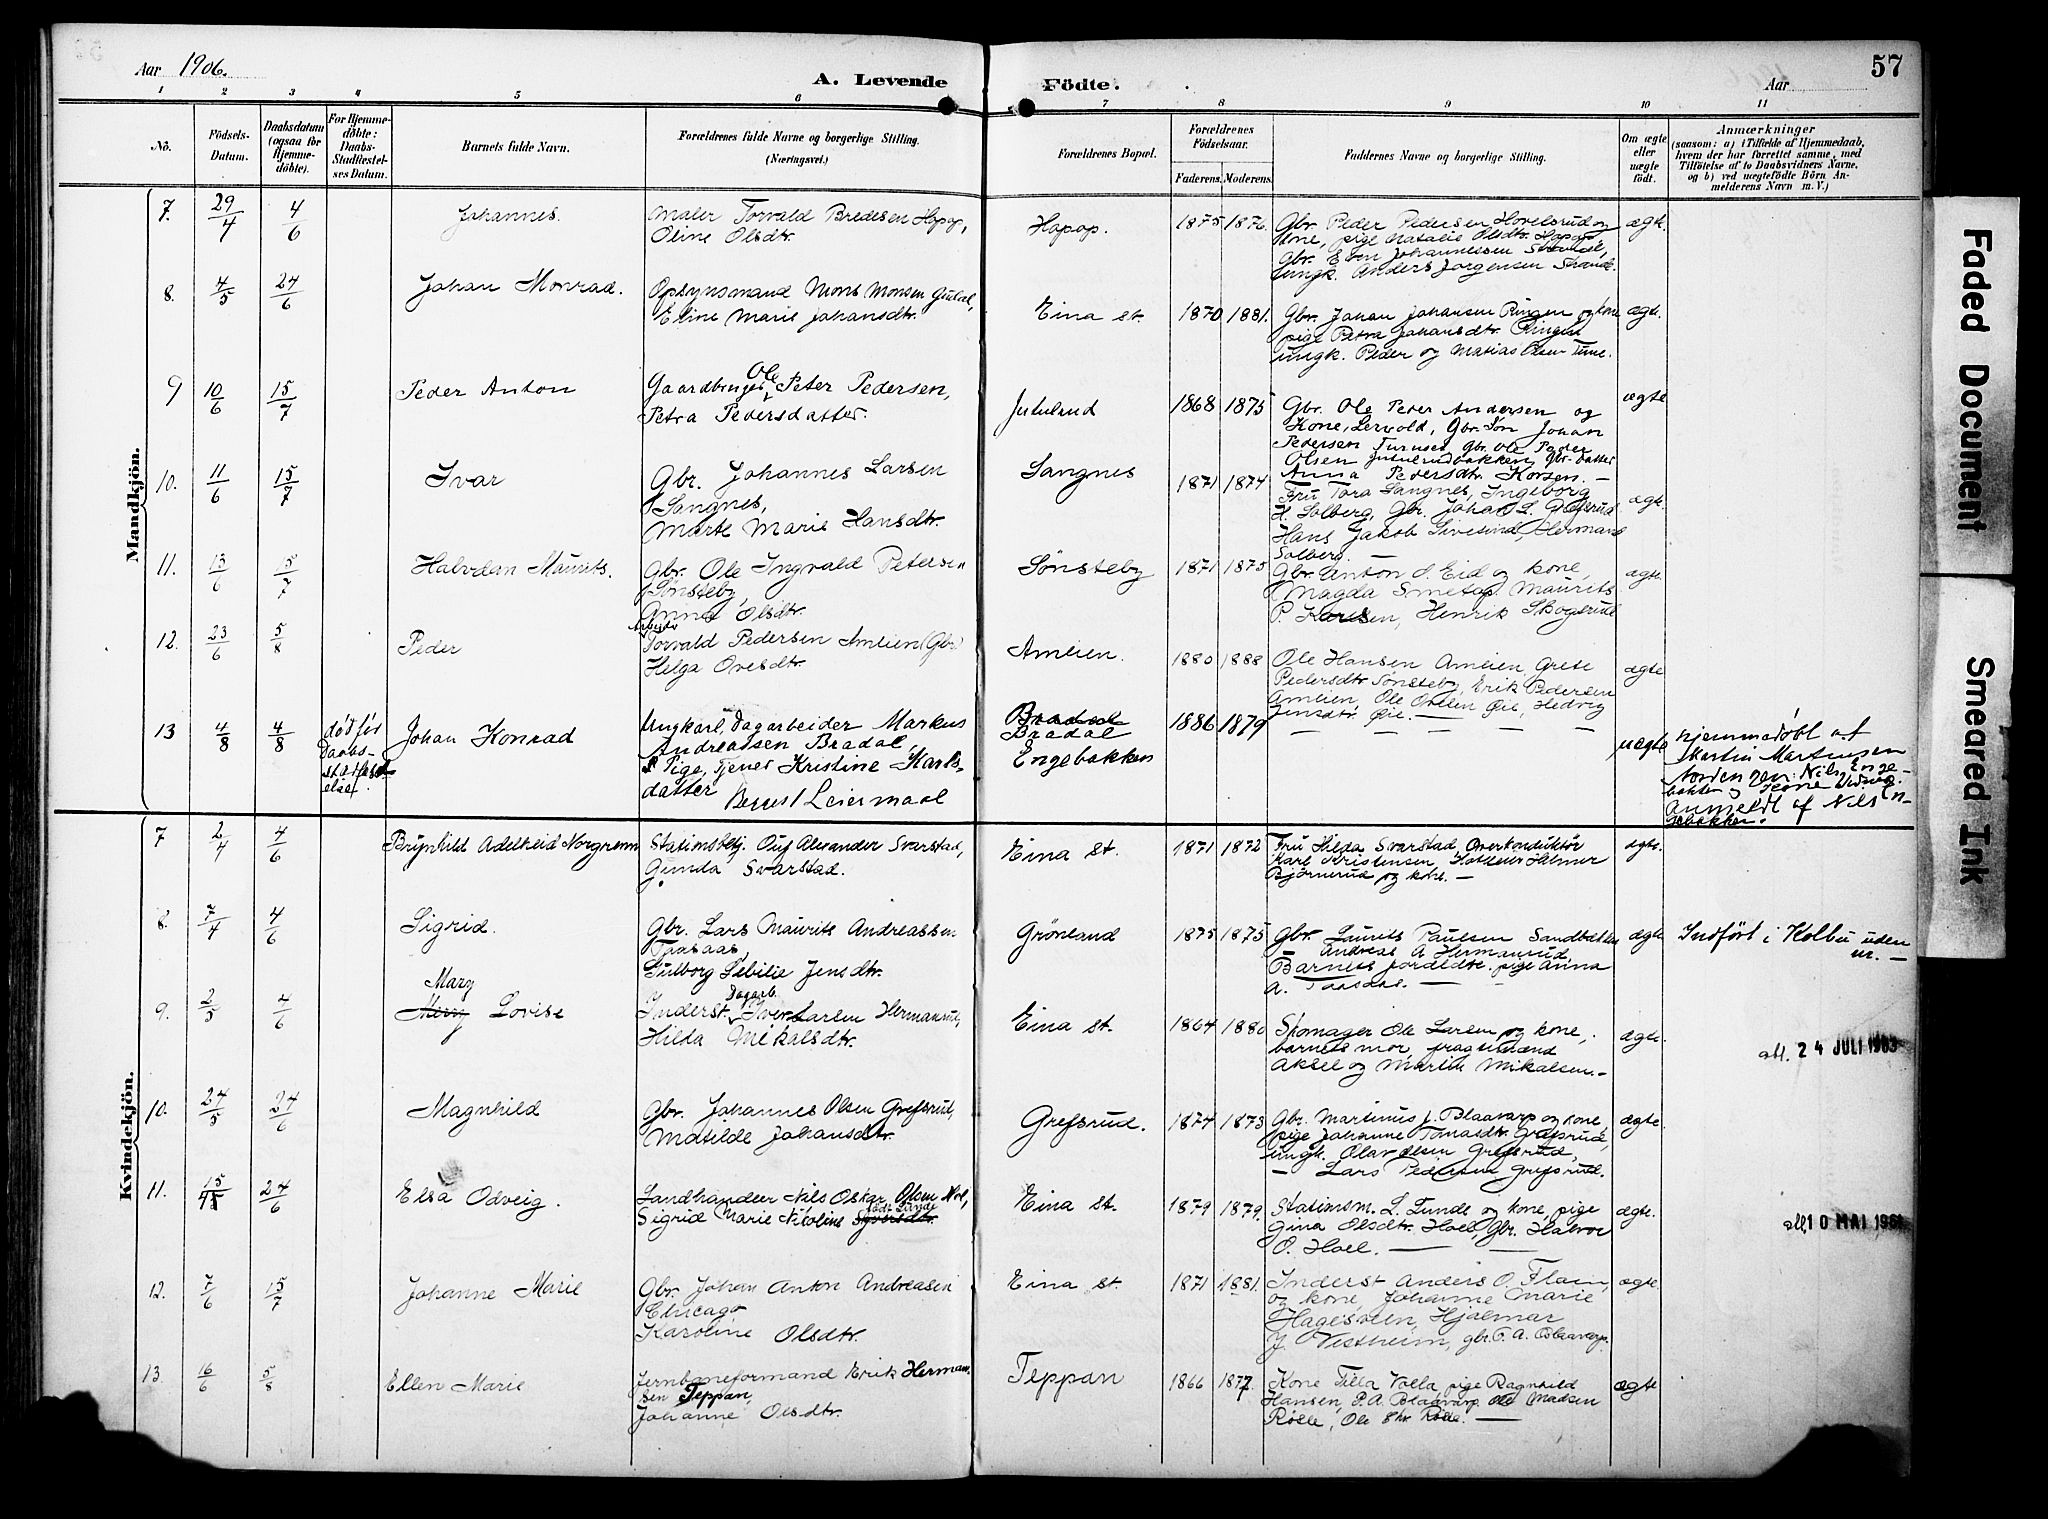 Aar 1906.
A. Levende Födte.
Aar
57
1 2 3 4 5 6 7 8 9 10 11
No.
Födsels-Datum.
Daabsdatum (ogsaa for Hjemme-döbte).
For Hjemme-döbte: Daabs-Stadfæstel-ses Datum.
Barnets fulde Navn.
Forældrenes fulde Navne og borgerlige Stilling.
(Næringsvei.)
Forældrenes Bopæl.
Forældrenes Födselsaar.
Faderens. Moderens.
Faddernes Navne og borgerlige Stilling.
Om ægte eller uægte födt.
Anmærkninger
(saasom: a) i Tilfælde af Hjemmedaab,
hvem der har forrettet samme, med
Tilföielse af to Daabsvidners Navne,
og b) ved uægtefödte Börn An-
melderens Navn m. V.)
Mandkjön.
7. 29/4 4/6 Johannes. Maler Torvald Bredesen Hopop,
Oline Olsdtr. Hopop. 1875 1876. Gbr. Peder Pedersen Hovelsrud og
kone, pige Natalie Olsdtr. Hopop,
Gbr. Even Johannessen Strande,
ungk. Anders Jörgensen Strande. ægt.
8. 4/5 24/6 Johan Monrad. Opsynsmand Mons Monsen
Eline Marie Johansdtr. Eina st. 1870 1881. Gbr. Johan Johansen Ringen og kone
pige Petra Johansdtr. Ringen
ungk. Peder og Matias Olsen ægte.
9 10/6 15/7 Peder Anton Gaardbruger Ole Peter Pedersen,
Petra Pedersdatter. Jutulrud 1868 1875 Gbr. Ole Peter Andersen og
Kone, Gbr. Søn Johan
Pedersen Gbr. Ole Peder
Olsen Jutulrudbakken, Gbr. datter
Anna Pedersdtr. Korsen. — ægte
10. 11/6 15/7 Ivar Gbr. Johannes Larsen
Sangnes,
Marte Marie Hansdtr. Sangnes 1871 1874 Fru Tora Sangnes, Ingeborg
H. Solberg, Gbr. Johan L. Grefsrud
Hans Jakob Sivesind, Hermand
Solberg. — ægt.
11. 13/6 15/7 Halvdan Maurits. Gbr. Ole Ingvald Petersen
Sønsteby,
Anna Olsdtr. Sønsteby 1871 1875 Gbr. Anton S. Eid og kone,
Magda Maurits
P. Karlsen, Henrik Skogsrud ægte.
12. 23/6 5/8 Peder Arbeider
Torvald Pedersen Amlien (Gbr.)
Helga Ovesdtr. Amlien. 1880 1888 Ole Hansen Amlien, Grete
Pedersdtr. Sønsteby, Erik Pedersen
Amlien, Ole Øie, Hedvig
Jensdtr. Øie. — ægte
13 4/8 4/8 død før
Daabs-
stadfæst-
else. Johan Konrad Ungkarl, Dagarbeider Markus
Andreassen Bradal,
Pige, Tjener Kristine Karls-
datter Begges 1 Leiermaal Bradal
Bradal
Engebakken 1886 1879 — — — — — — uægte hjemmedöbt af
Martin Martinsen
Norden gen: Nils Enge-
bakken og Kone
Anmeldt af Nils En-
gebakken.
Kvindekjön.
7 2/4 4/6 Brynhild Adelheid Norgrenn Stationsbetj. Oluf Alexander Svarstad,
Gunda Svarstad. Eina st. 1871 1872 Fru Hilda Svarstad Overkonduktör
Karl Kristensen, Hotteier Hilmer
Björnerud og kone. — ægte.
8. 7/4 4/6 Sigrid. Gbr. Lars Maurits Andreassen
Taasaas,
Gulborg Sebilie Jensdtr. Grönland 1875 1875 Gbr. Laurits Paulsen Sandbakken
Andreas A Hermanrud,
Barnets forældre. pige Anna
A. Taasaas. — — ægte Indført i Kolbu uden
nr. —
9. 2/5 4/6 Mary
Merry Lovise Dagarb.
Inderst Iver Larsen Hermanrud,
Hilda Mikalsdtr. Eina st. 1864 1880 Skomager Ole Larsen og kone,
barnets mor,
Aksel og Martin Mikalsen. — ægte. att. 24 JULI 1963
10. 24/5 24/6 Magnhild Gbr. Johannes Olsen Grefsrud,
Matilde Johansdtr. Grefsrud. 1874 1873 Gbr. Martinus J. Blaavarp og kone,
pige Johanne Tomasdtr. Grefsrud,
ungk. Olav Olsen Grefsrud,
— Lars Pedersen Grefsrud. ægte.
11. 15/5 24/6 Elsa Odveig. Landhandler Nils Oskar Olsen Hoel,
Sigrid Marie Nicoline Syversdtr. født Lunde Eina st. 1879 1879. Stationsm. L. Lunde og kone, pige
Gina Olsdtr. Hoel, Gbr. Halvor
O. Hoel. — — ægte. att. 10 MAI 1961
12. 7/6 15/7 Johanne Marie Gbr. Johan Anton Andreasen
Chicago
Karoline Olsdtr. Eina st. 1871 1881. Inderst Anders O. Flaen,
og kone, Johanne Marie
Hagesveen, Hjalmar
J. Vestheim, gbr. P. A. Blaavarp. ægte.
13 16/6 5/8 Ellen Marie Jernbaneformand Erik Herman-
sen Teppan,
Johanne Olsdtr. Teppan 1866 1877. Kone Tilla Volla, pige Ragnhild
Hansen, P. A. Blaavarp, Ole Madsen
Røise, Ole Chr. Røise. — ægte
Faded Document
Smeared Ink